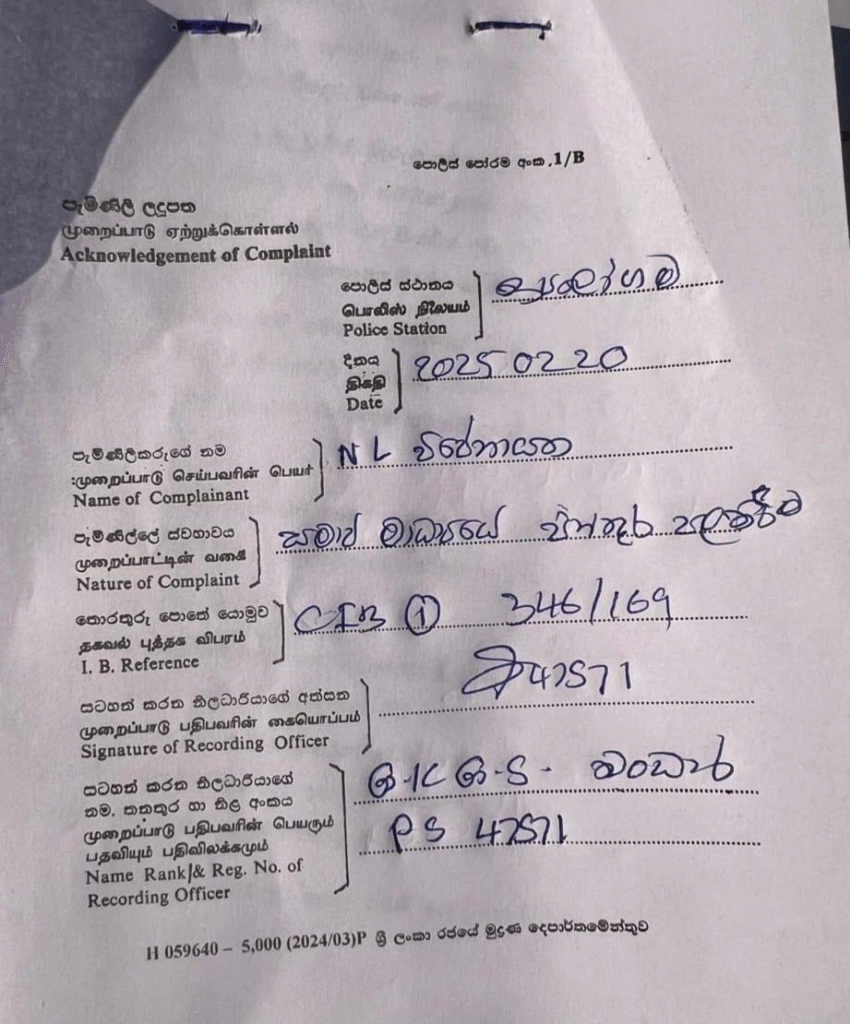 පොලිස් පෝරම අංක 1/B
පැමිණිලි ලදුපත
முறைப்பாடு ஏற்றுக்கொள்ளல்
Acknowledgement of Complaint
පොලිස් ස්ථානය
பொலிஸ் நிலையம்
Police Station
දිනය
திகதி
Date
2025 02 20
පැමිණිලිකරුගේ නම
முறைப்பாடு செய்பவரின் பெயர்
Name of Complainant
N L විජේනායක
පැමිණිල්ලේ ස්වභාවය
முறைப்பாட்டின் வகை
Nature of Complaint
සමාජ මාධ්‍යයේ පින්තූර පලකිරීම
තොරතුරු පොතේ යොමුව
தகவல் புத்தக விபரம்
I. B. Reference
CIB ① 346/169
සටහන් කරන නිලධාරියාගේ අත්සන
முறைப்பாடு பதிபவரின் கையொப்பம்
Signature of Recording Officer
47571
සටහන් කරන නිලධාරියාගේ
නම, තනතුර හා නිල අංකය
முறைப்பாடு பதிபவரின் பெயரும்
பதவியும் பதிவிலக்கமும்
Name Rank & Reg. No. of
Recording Officer
G.K G.S. බංඩාර
PS 47571
H 059640 – 5,000 (2024/03)P ශ්‍රී ලංකා රජයේ මුද්‍රණ දෙපාර්තමේන්තුව